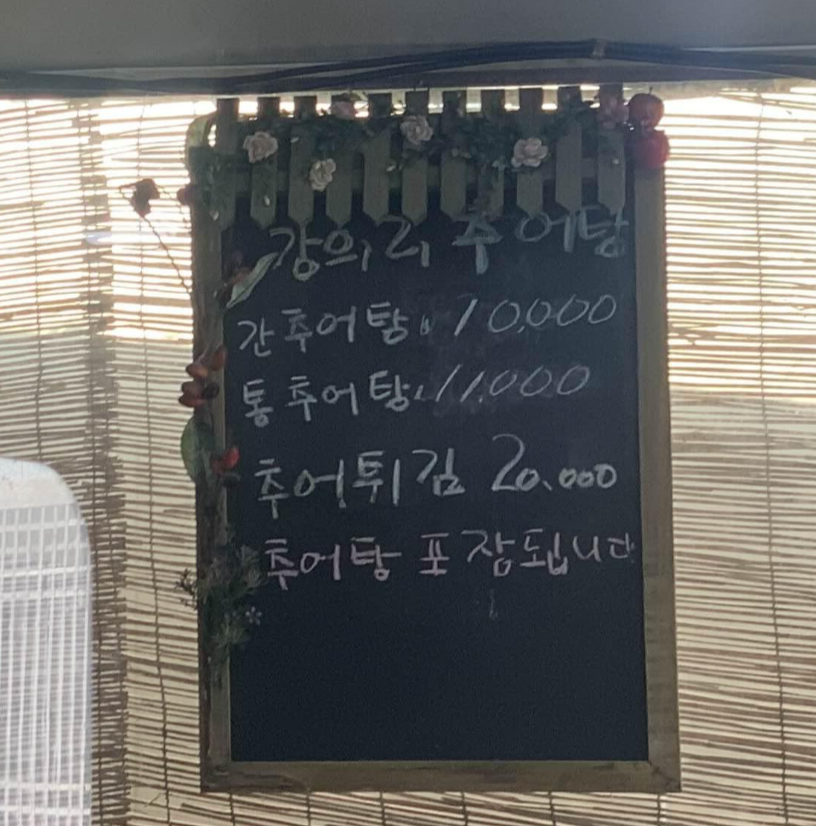 강의리 추어탕
간추어탕 10,000
통추어탕 11,000
추어튀김 20,000
추어탕 포장됩니다